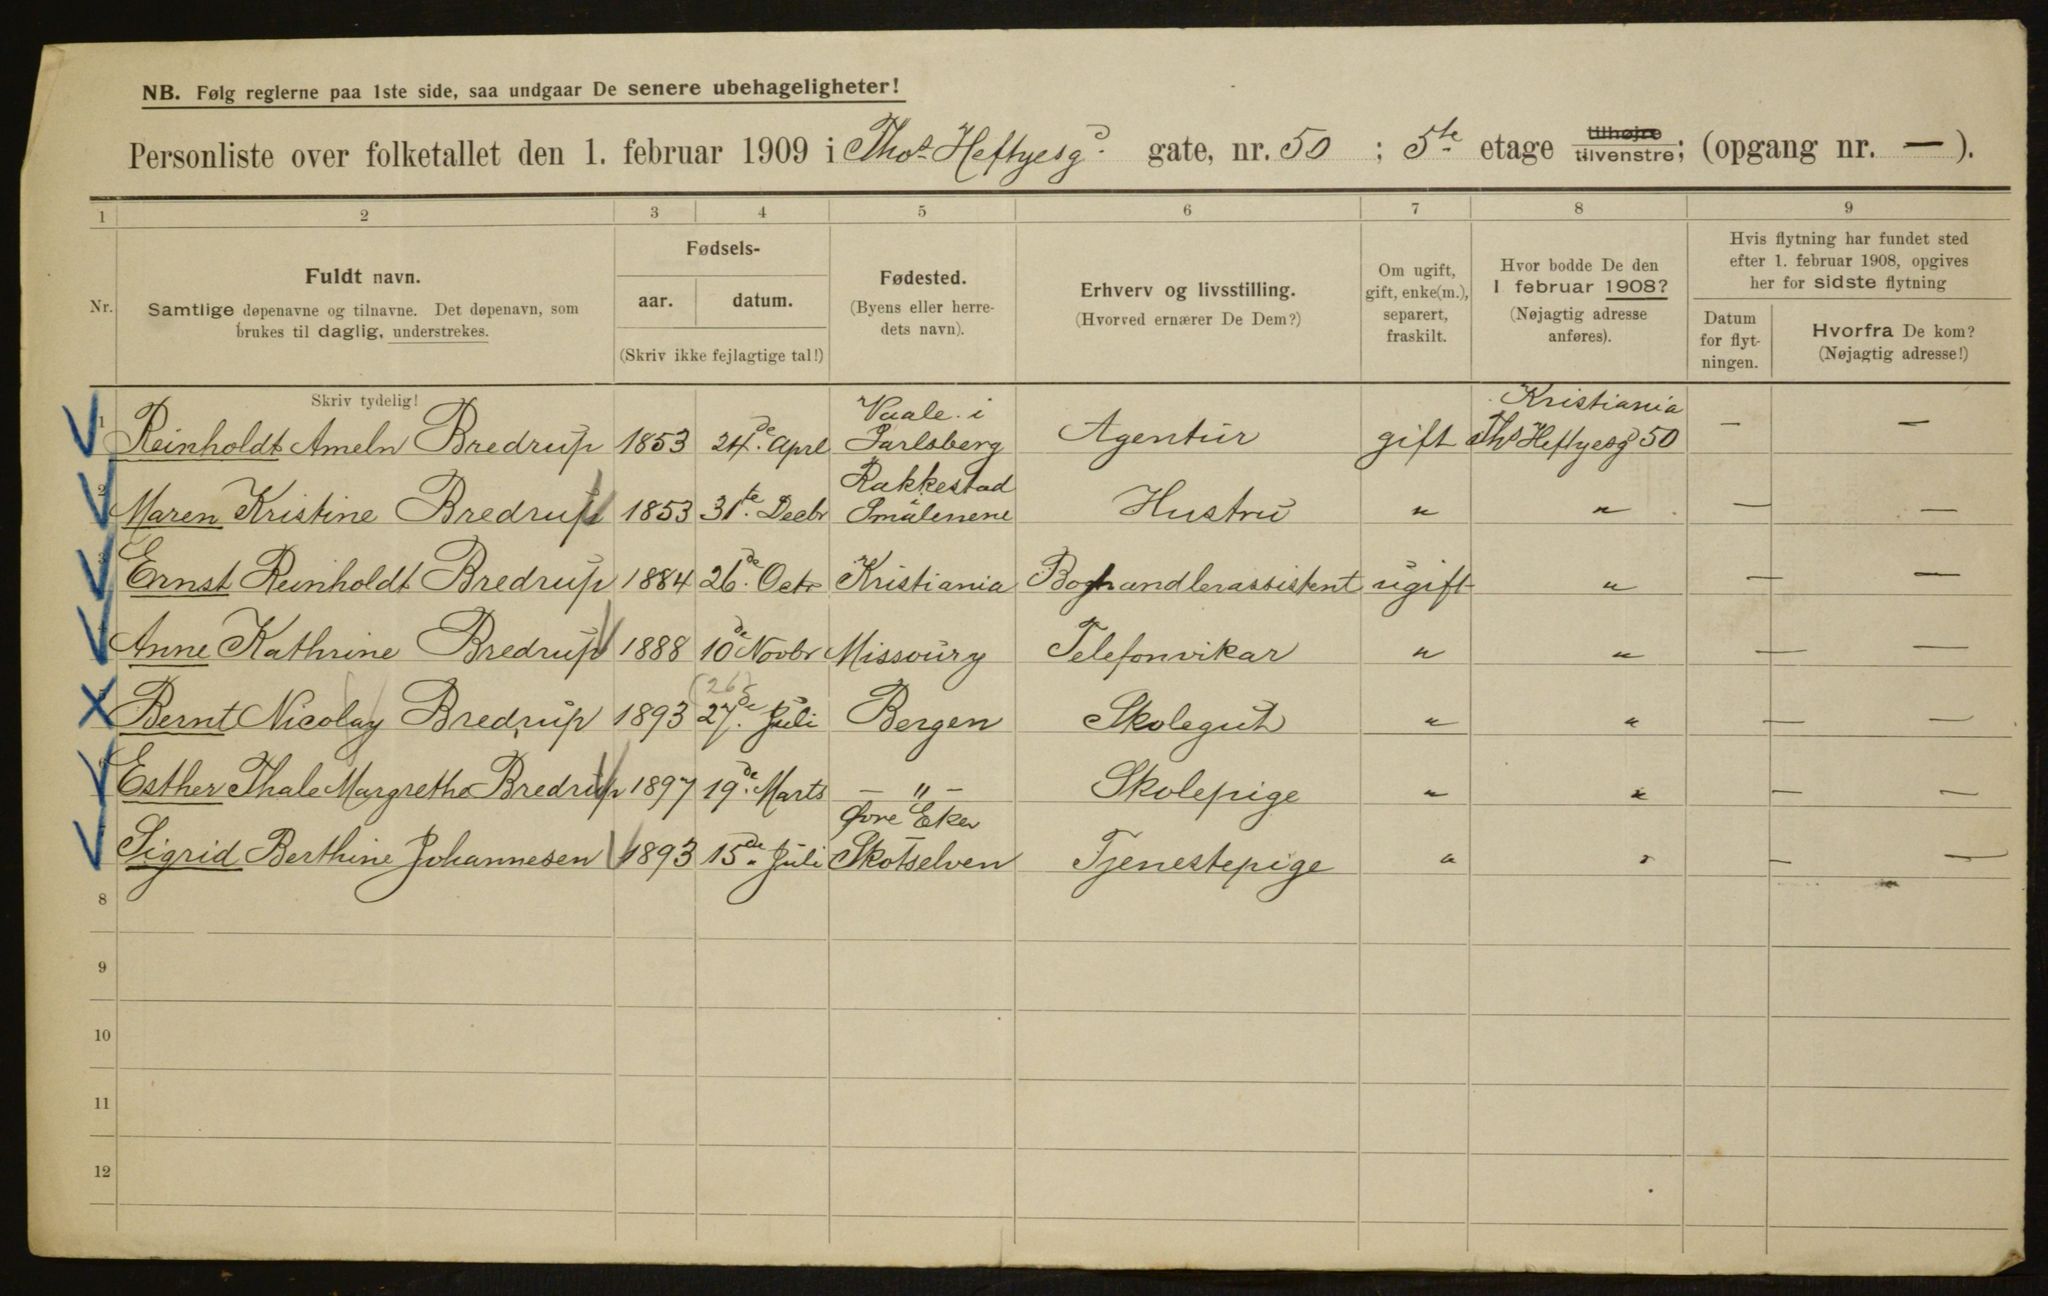 NB. Følg reglerne paa 1ste side, saa undgaar De senere ubehageligheter!
Personliste over folketallet den 1. februar 1909 i Ths. Heftyesgd. gate, nr. 50 ; 5te etage tilhøjre tilvenstre; (opgang nr. — ).
1 2 3 4 5 6 7 8 9
Nr.
Fuldt navn.
Samtlige døpenavne og tilnavne. Det døpenavn, som
brukes til daglig, understrekes.
Fødsels-
aar. datum.
(Skriv ikke fejlagtige tal!)
Fødested.
(Byens eller herre-
dets navn).
Erhverv og livsstilling.
(Hvorved ernærer De Dem?)
Om ugift,
gift, enke(m.),
separert,
fraskilt.
Hvor bodde De den
1 februar 1908?
(Nøjagtig adresse
anføres).
Hvis flytning har fundet sted
efter 1. februar 1908, opgives
her for sidste flytning
Datum
for flyt-
ningen.
Hvorfra De kom?
(Nøjagtig adresse!)
Skriv tydelig!
Vaale i Kristiania
1 Reinholdt Ameln Bredrup 1853 24de Aprl Jarlsberg Agentur gift Ths Heftyesgd 50 — —
Rakkestad
2 Maren Kristine Bredrup 1853 31te Decbr Smålenene Hustru " " — —
3 Ernst Reinholdt Bredrup 1884 26de Octr Kristiania Boghandlerassistent ugift " — —
4 Anne Kathrine Bredrup 1888 10de Novbr Missoury Telefonvikar " " — —
(26)
5 Bernt Nicolay Bredrup 1893 27de Juli Bergen Skolegut " " — —
6 Esther Thale Margrethe Bredrup 1897 19de Marts — " — Skolepige " " — —
Øvre Eker
7 Sigrid Berthine Johannesen 1893 15de Juli Skotselven Tjenestepige " " — —
8
9
10
11
12